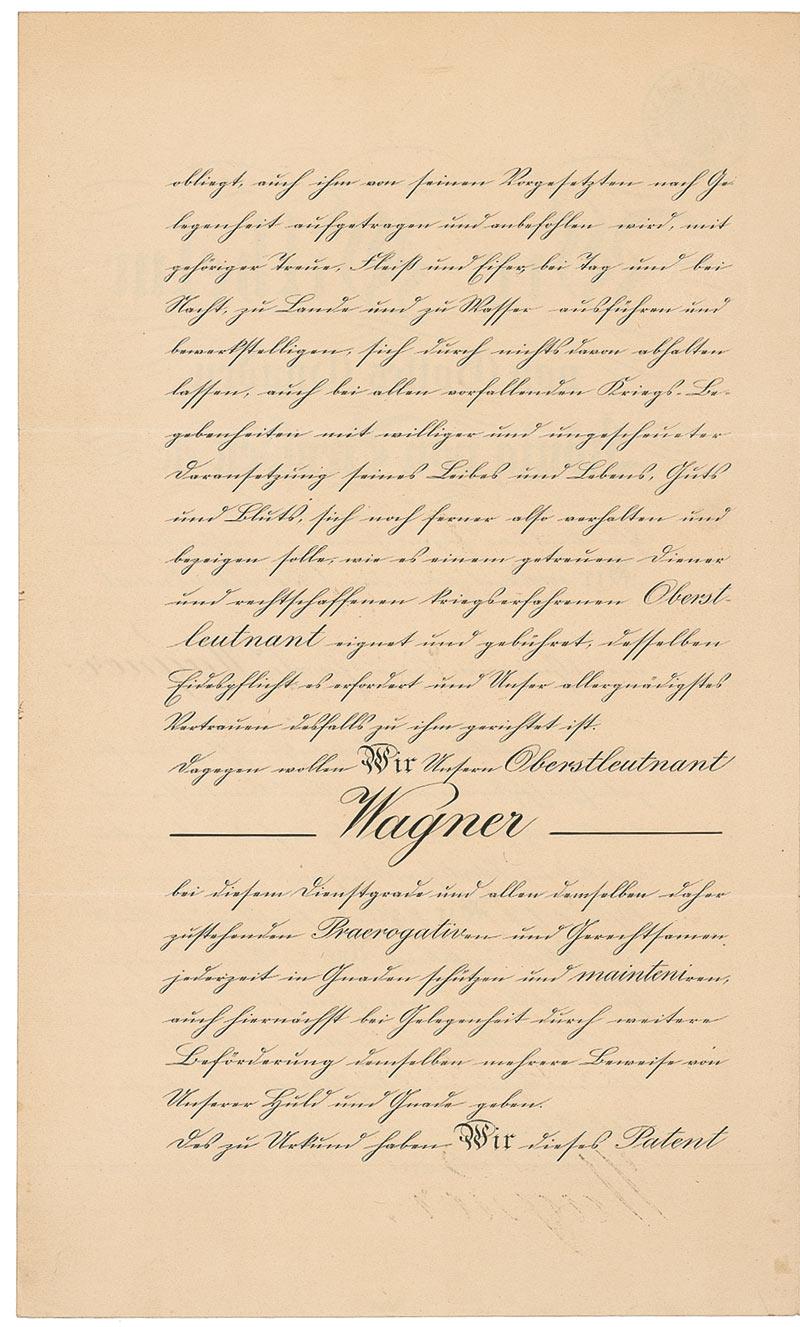 obliegt, auch ihm von seinen Vorgesetzten nach Ge-
legenheit aufgetragen und anbefohlen wird, mit
gehöriger Treue, Fleiß und Eifer, bei Tag und bei
Nacht, zu Lande und zu Wasser ausführen und
bewerkstelligen, sich durch nichts davon abhalten
lassen, auch bei allen vorfallenden Kriegs-Be-
gebenheiten mit williger und ungescheueter
Daransetzung seines Leibes und Lebens, Guts
und Bluts, sich noch ferner also verhalten und
bezeigen solle, wie es einem getreuen Diener
und rechtschaffenen kriegserfahrenen Oberst-
leutnant eignet und gebühret, desselben
Eidespflicht es erfordert und Unser allergnädigstes
Vertrauen desfalls zu ihm gerichtet ist.
Dagegen wollen Wir Unsern Oberstleutnant
Wagner
bei diesem Dienstgrade und allen demselben daher
zustehenden Praerogativen und Gerechtsamen,
jederzeit in Gnaden schützen und mainteniren,
auch hiernächst bei Gelegenheit durch weitere
Beförderung demselben mehrere Beweise von
Unserer Huld und Gnade geben.
Des zu Urkund haben Wir dieses Patent